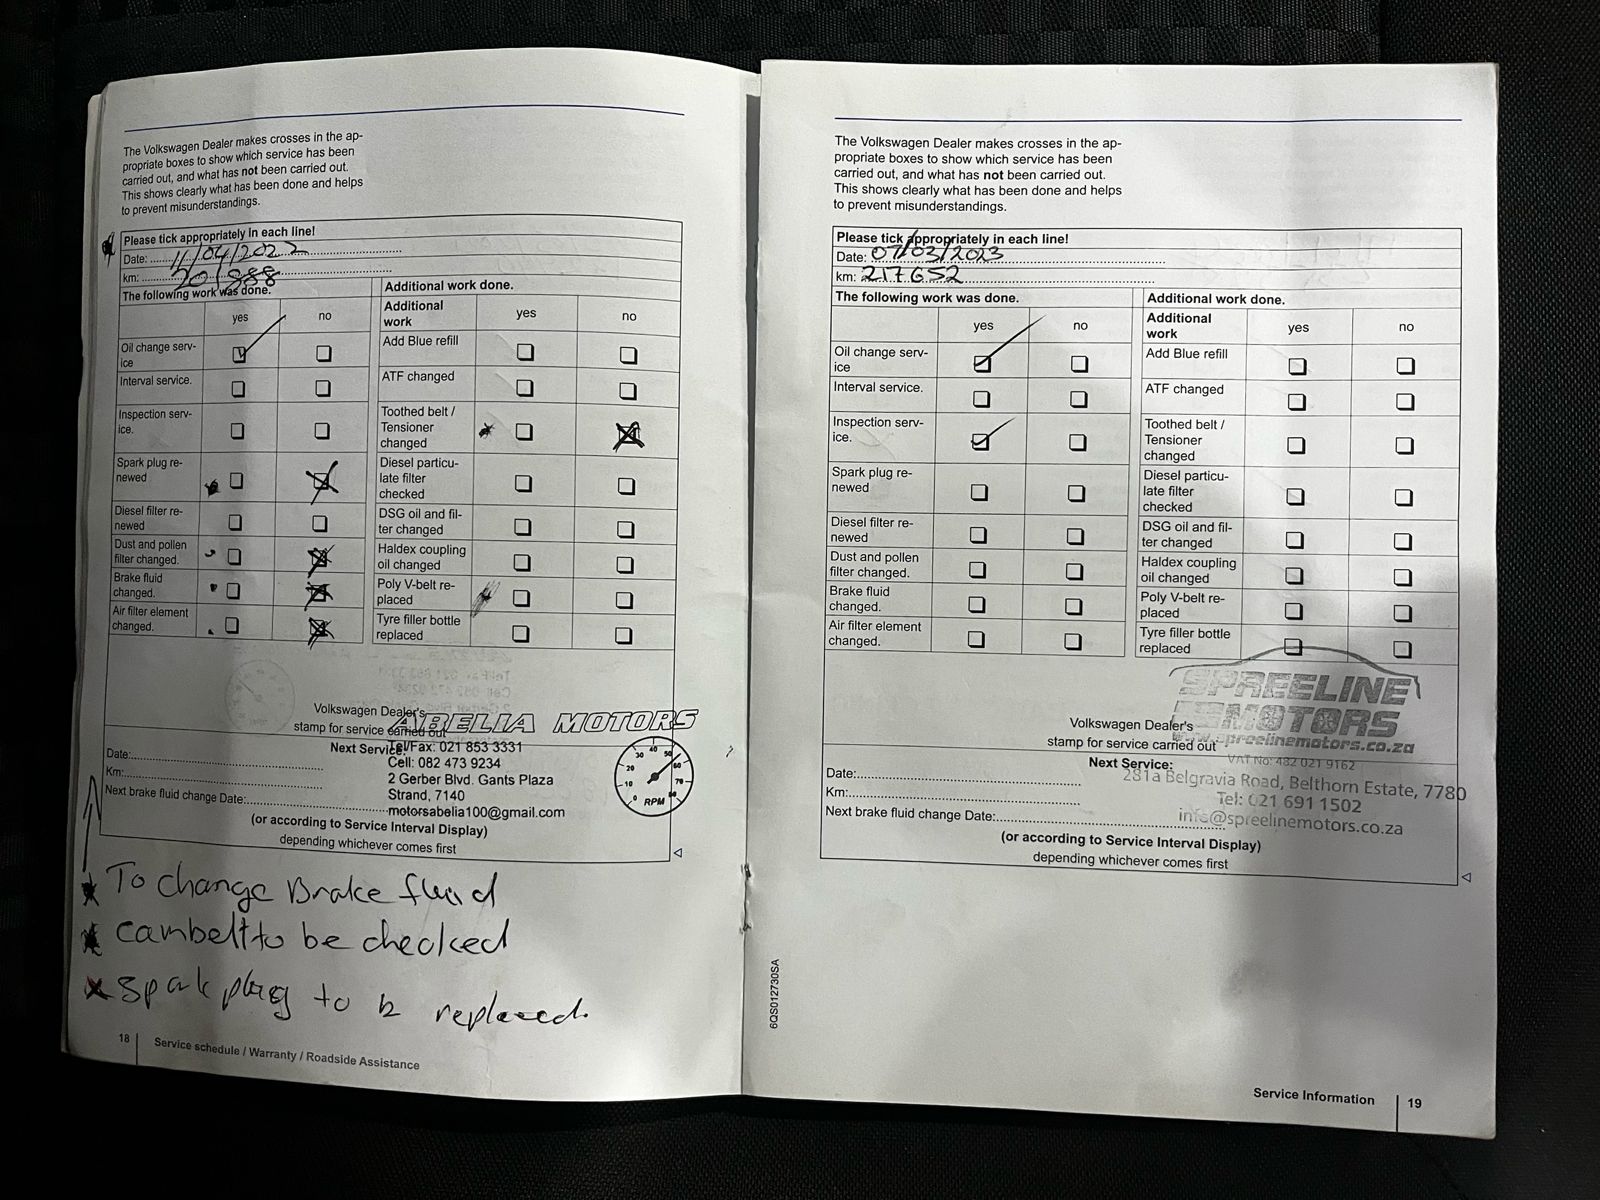 The Volkswagen Dealer makes crosses in the ap-
propriate boxes to show which service has been
carried out, and what has not been carried out.
This shows clearly what has been done and helps
to prevent misunderstandings.
Please tick appropriately in each line!
Date: 11/04/2022
km: 201888
The following work was done.
yes no
Oil change serv-
ice
Interval service.
Inspection serv-
ice.
Spark plug re-
newed
Diesel filter re-
newed
Dust and pollen
filter changed.
Brake fluid
changed.
Air filter element
changed.
Additional work done.
Additional
work
yes no
Add Blue refill
ATF changed
Toothed belt /
Tensioner
changed
Diesel particu-
late filter
checked
DSG oil and fil-
ter changed
Haldex coupling
oil changed
Poly V-belt re-
placed
Tyre filler bottle
replaced
Volkswagen Dealer's
stamp for service carried out
ABELIA MOTORS
Tel/Fax: 021 853 3331
Cell: 082 473 9234
2 Gerber Blvd. Gants Plaza
Strand, 7140
motorsabelia100@gmail.com
0 10 20 30 40 50 60 70 80
RPM
Next Service:
Date:
Km:
Next brake fluid change Date:
(or according to Service Interval Display)
depending whichever comes first
To change Brake fluid
cambelt to be checked
spark plug to b replaced.
18 Service schedule / Warranty / Roadside Assistance
The Volkswagen Dealer makes crosses in the ap-
propriate boxes to show which service has been
carried out, and what has not been carried out.
This shows clearly what has been done and helps
to prevent misunderstandings.
Please tick appropriately in each line!
Date: 07/03/2023
km: 217652
The following work was done.
yes no
Oil change serv-
ice
Interval service.
Inspection serv-
ice.
Spark plug re-
newed
Diesel filter re-
newed
Dust and pollen
filter changed.
Brake fluid
changed.
Air filter element
changed.
Additional work done.
Additional
work
yes no
Add Blue refill
ATF changed
Toothed belt /
Tensioner
changed
Diesel particu-
late filter
checked
DSG oil and fil-
ter changed
Haldex coupling
oil changed
Poly V-belt re-
placed
Tyre filler bottle
replaced
Volkswagen Dealer's
stamp for service carried out
SPREELINE
MOTORS
www.spreelinemotors.co.za
VAT No: 482 021 9162
281a Belgravia Road, Belthorn Estate, 7780
Tel: 021 691 1502
info@spreelinemotors.co.za
Next Service:
Date:
Km:
Next brake fluid change Date:
(or according to Service Interval Display)
depending whichever comes first
6QS012730SA
Service Information 19